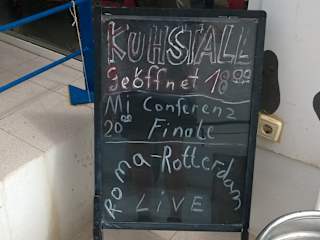 KUHSTALL
Geöffnet 18 00
Mi Conferenz
20 00 Finale
Roma-Rotterdam
LiVE